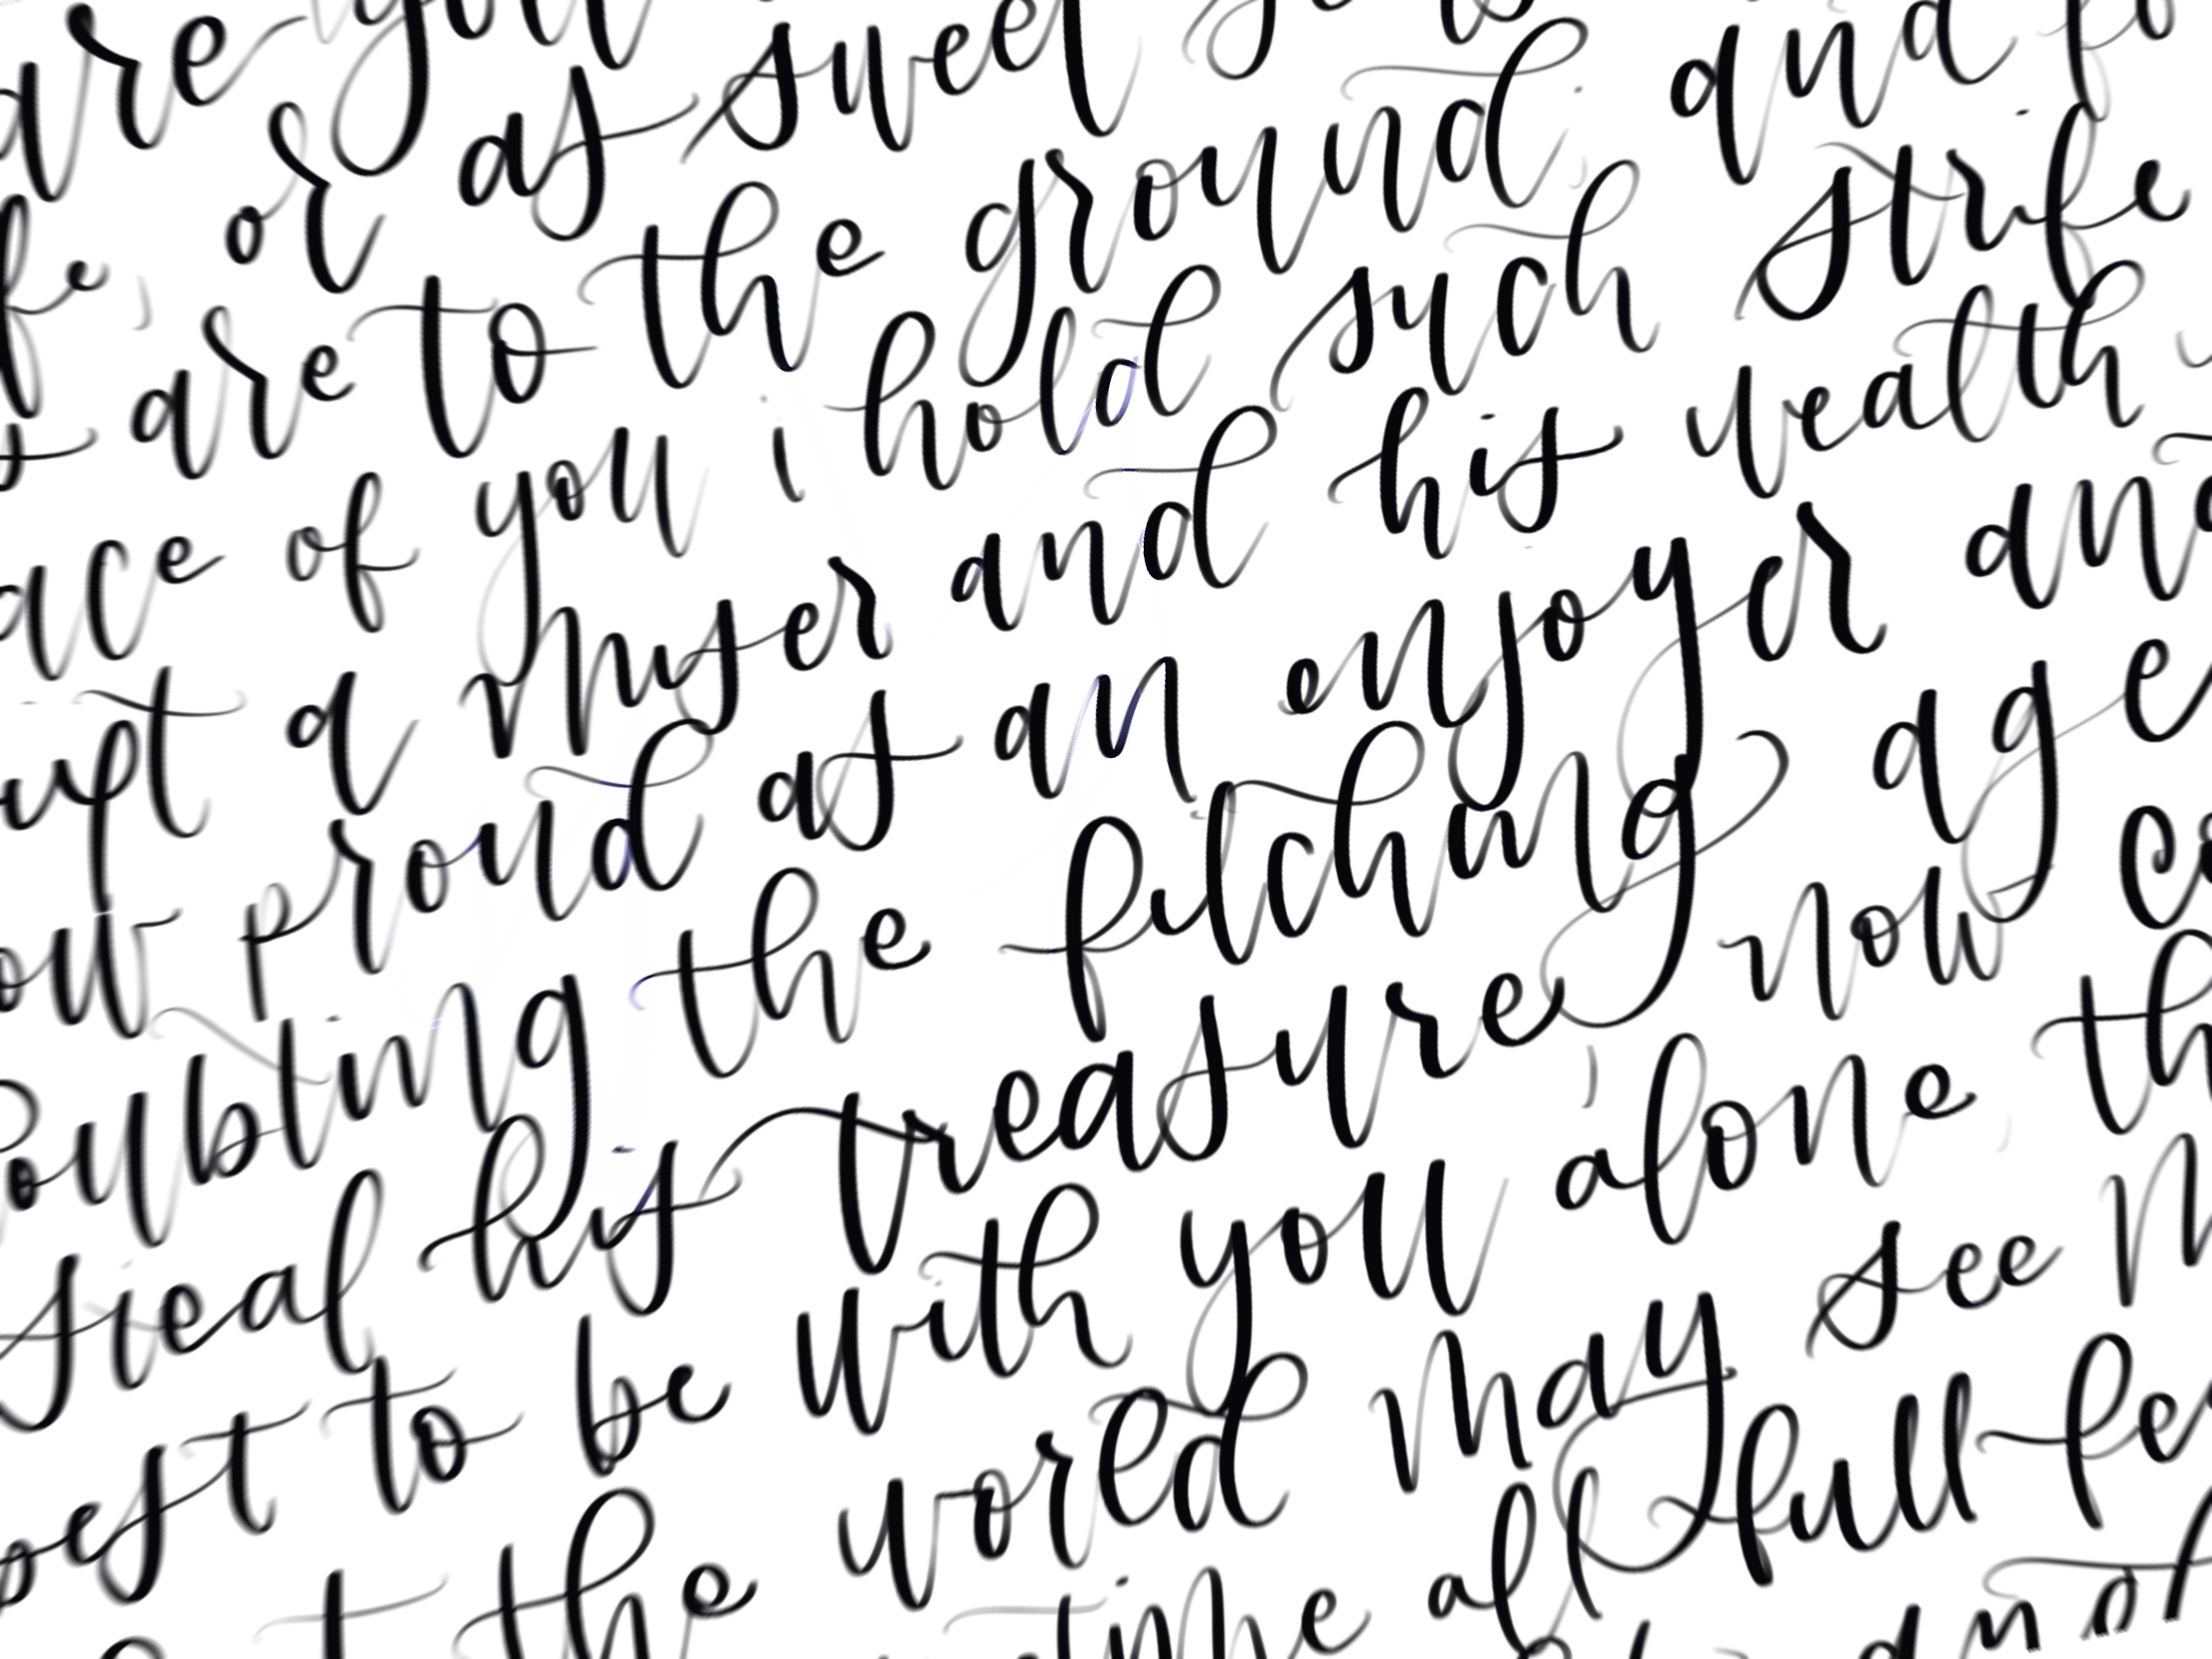 are you
or as sweet
are to the ground; and fo
ace of you i hold such strife
a miser and his wealth
ow proud as an enjoyer and
oubting the filching age
steal his treasure, now co
est to be with you alone, th
t the world may see m
time all full fe